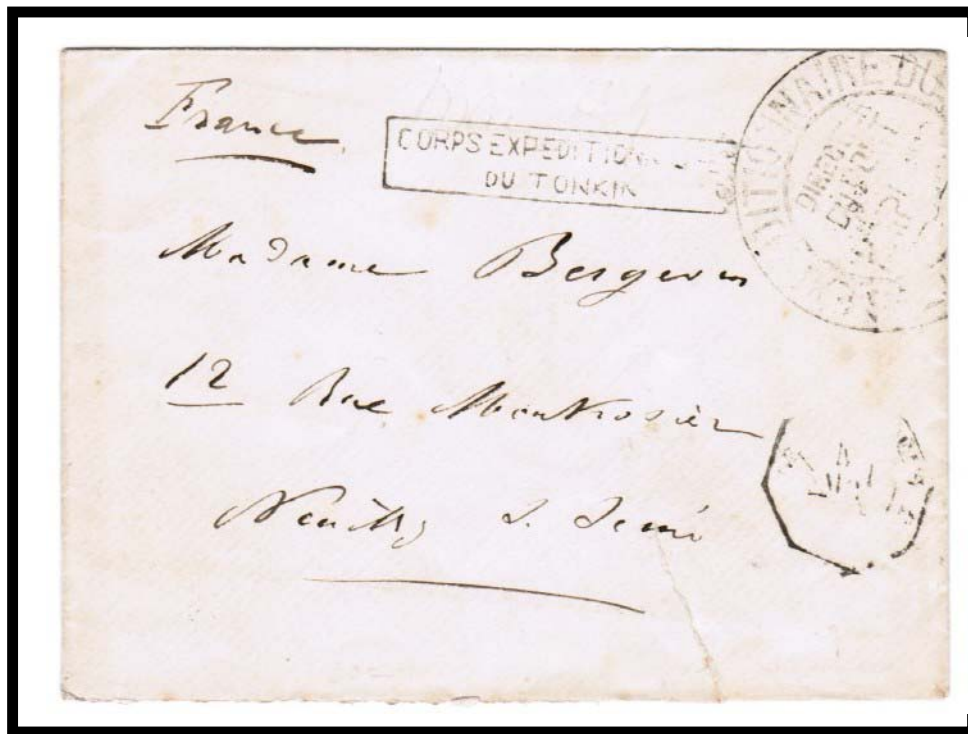 France
CORPS EXPEDITION
DU TONKIN
DITIONNAIRE DU
Madame Bergeron
12 Rue Montrosier
Neuilly s. Seine